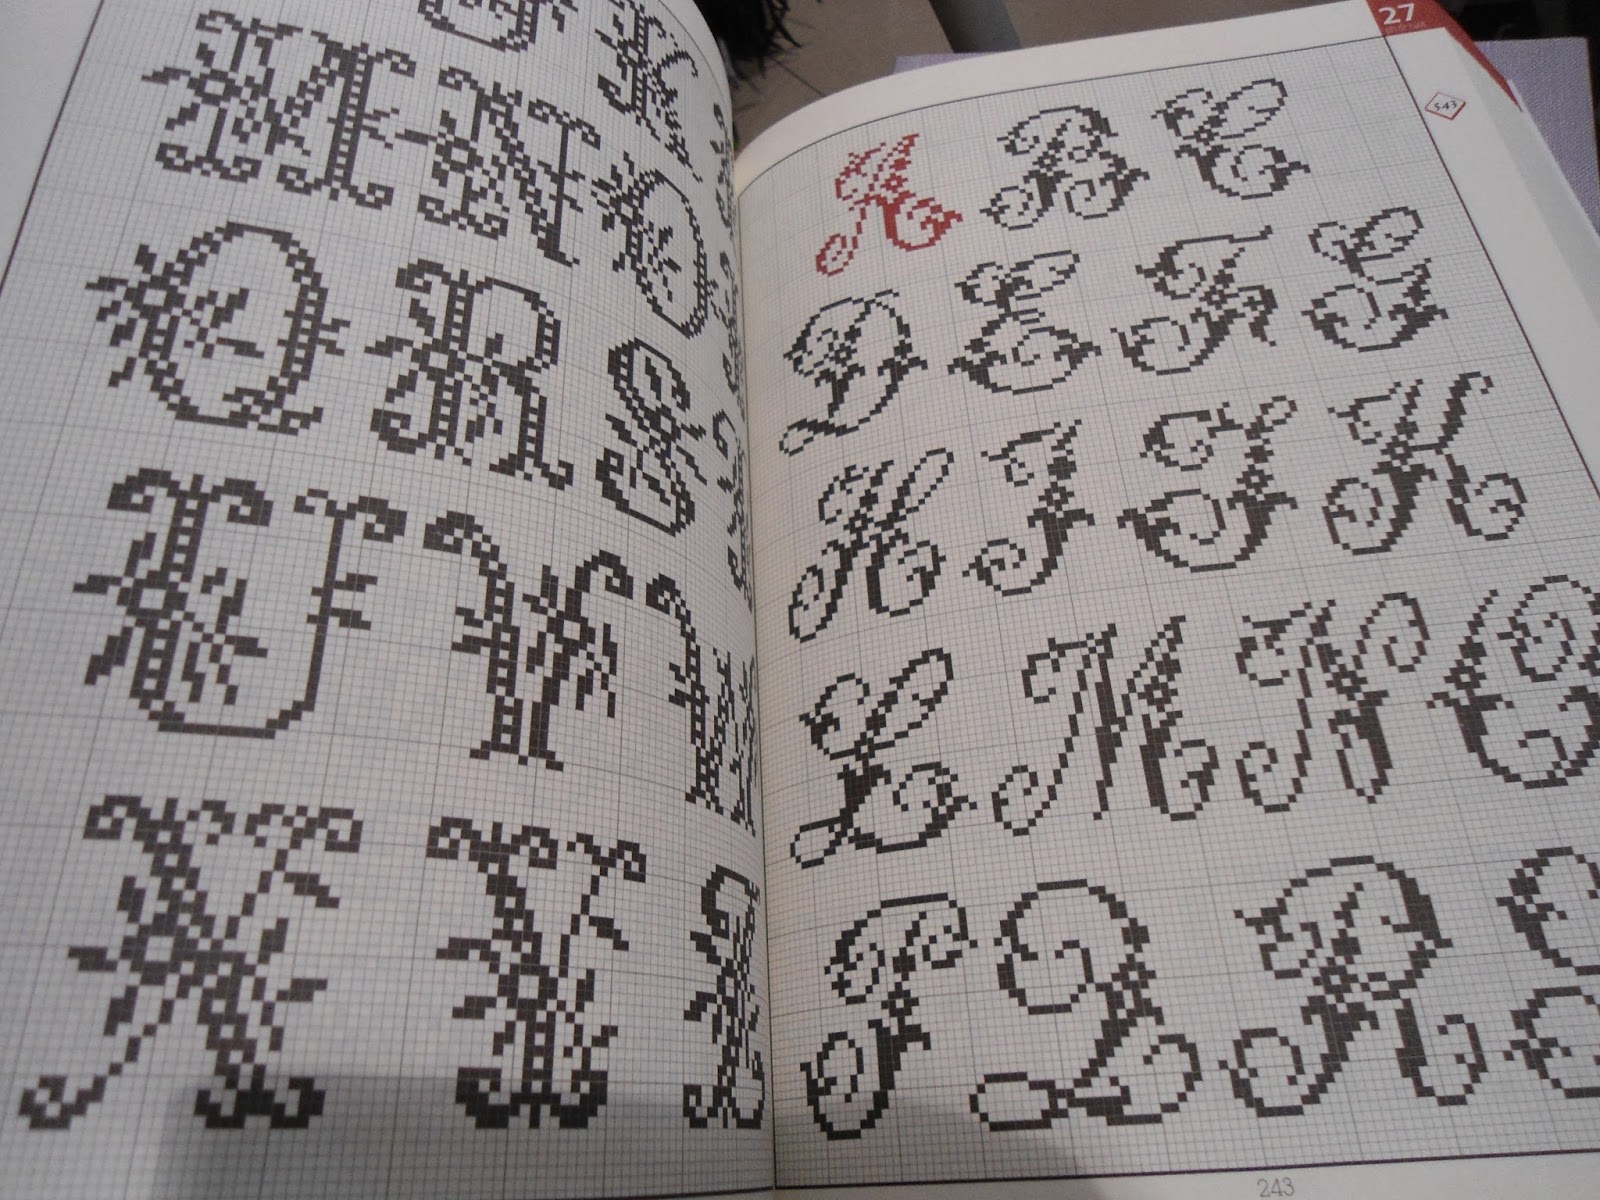 J K
M N O
Q R S
U V W
X Y Z
27
543
A B C
D E F G
H I J K
L M N O
P Q R S
243